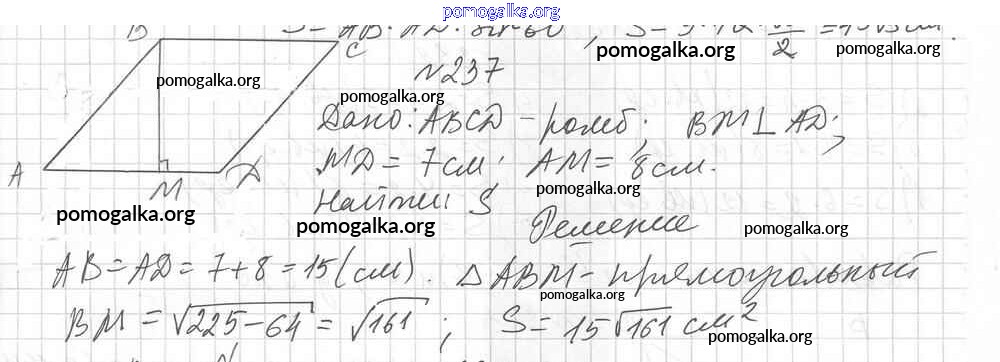 pomogalka.org
S = AB · AD · sin 60
pomogalka.org
B
C
pomogalka.org
№237
pomogalka.org
Дано: ABCD - ромб; BM ⊥ AD;
A
M
D
MD = 7 см; AM = 8 см.
pomogalka.org
Найти S
pomogalka.org
pomogalka.org
Решение
pomogalka.org
AB = AD = 7 + 8 = 15 (см). △ABM - прямоугольный
pomogalka.org
BM = √225 - 64 = √161; S = 15√161 см²
pomogalka.org